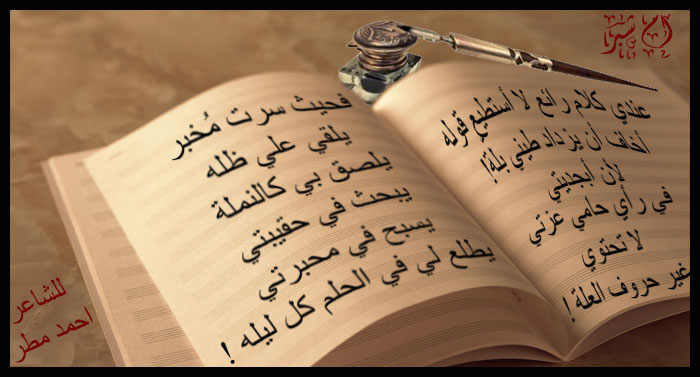 ام شبر
عندي كلام رائع لا أستطيع قوله
أخاف أن يزداد طيني بلة!
لأن أبجديتي
في رأي حامي عزتي
لا تحتوي
غير حروف العلة !
فحيث سرت مُخبر
يلقي علي ظله
يلصق بي كالنملة
يبحث في حقيبتي
يسبح في محبرتي
يطلع لي في الحلم كل ليله !
للشاعر
احمد مطر